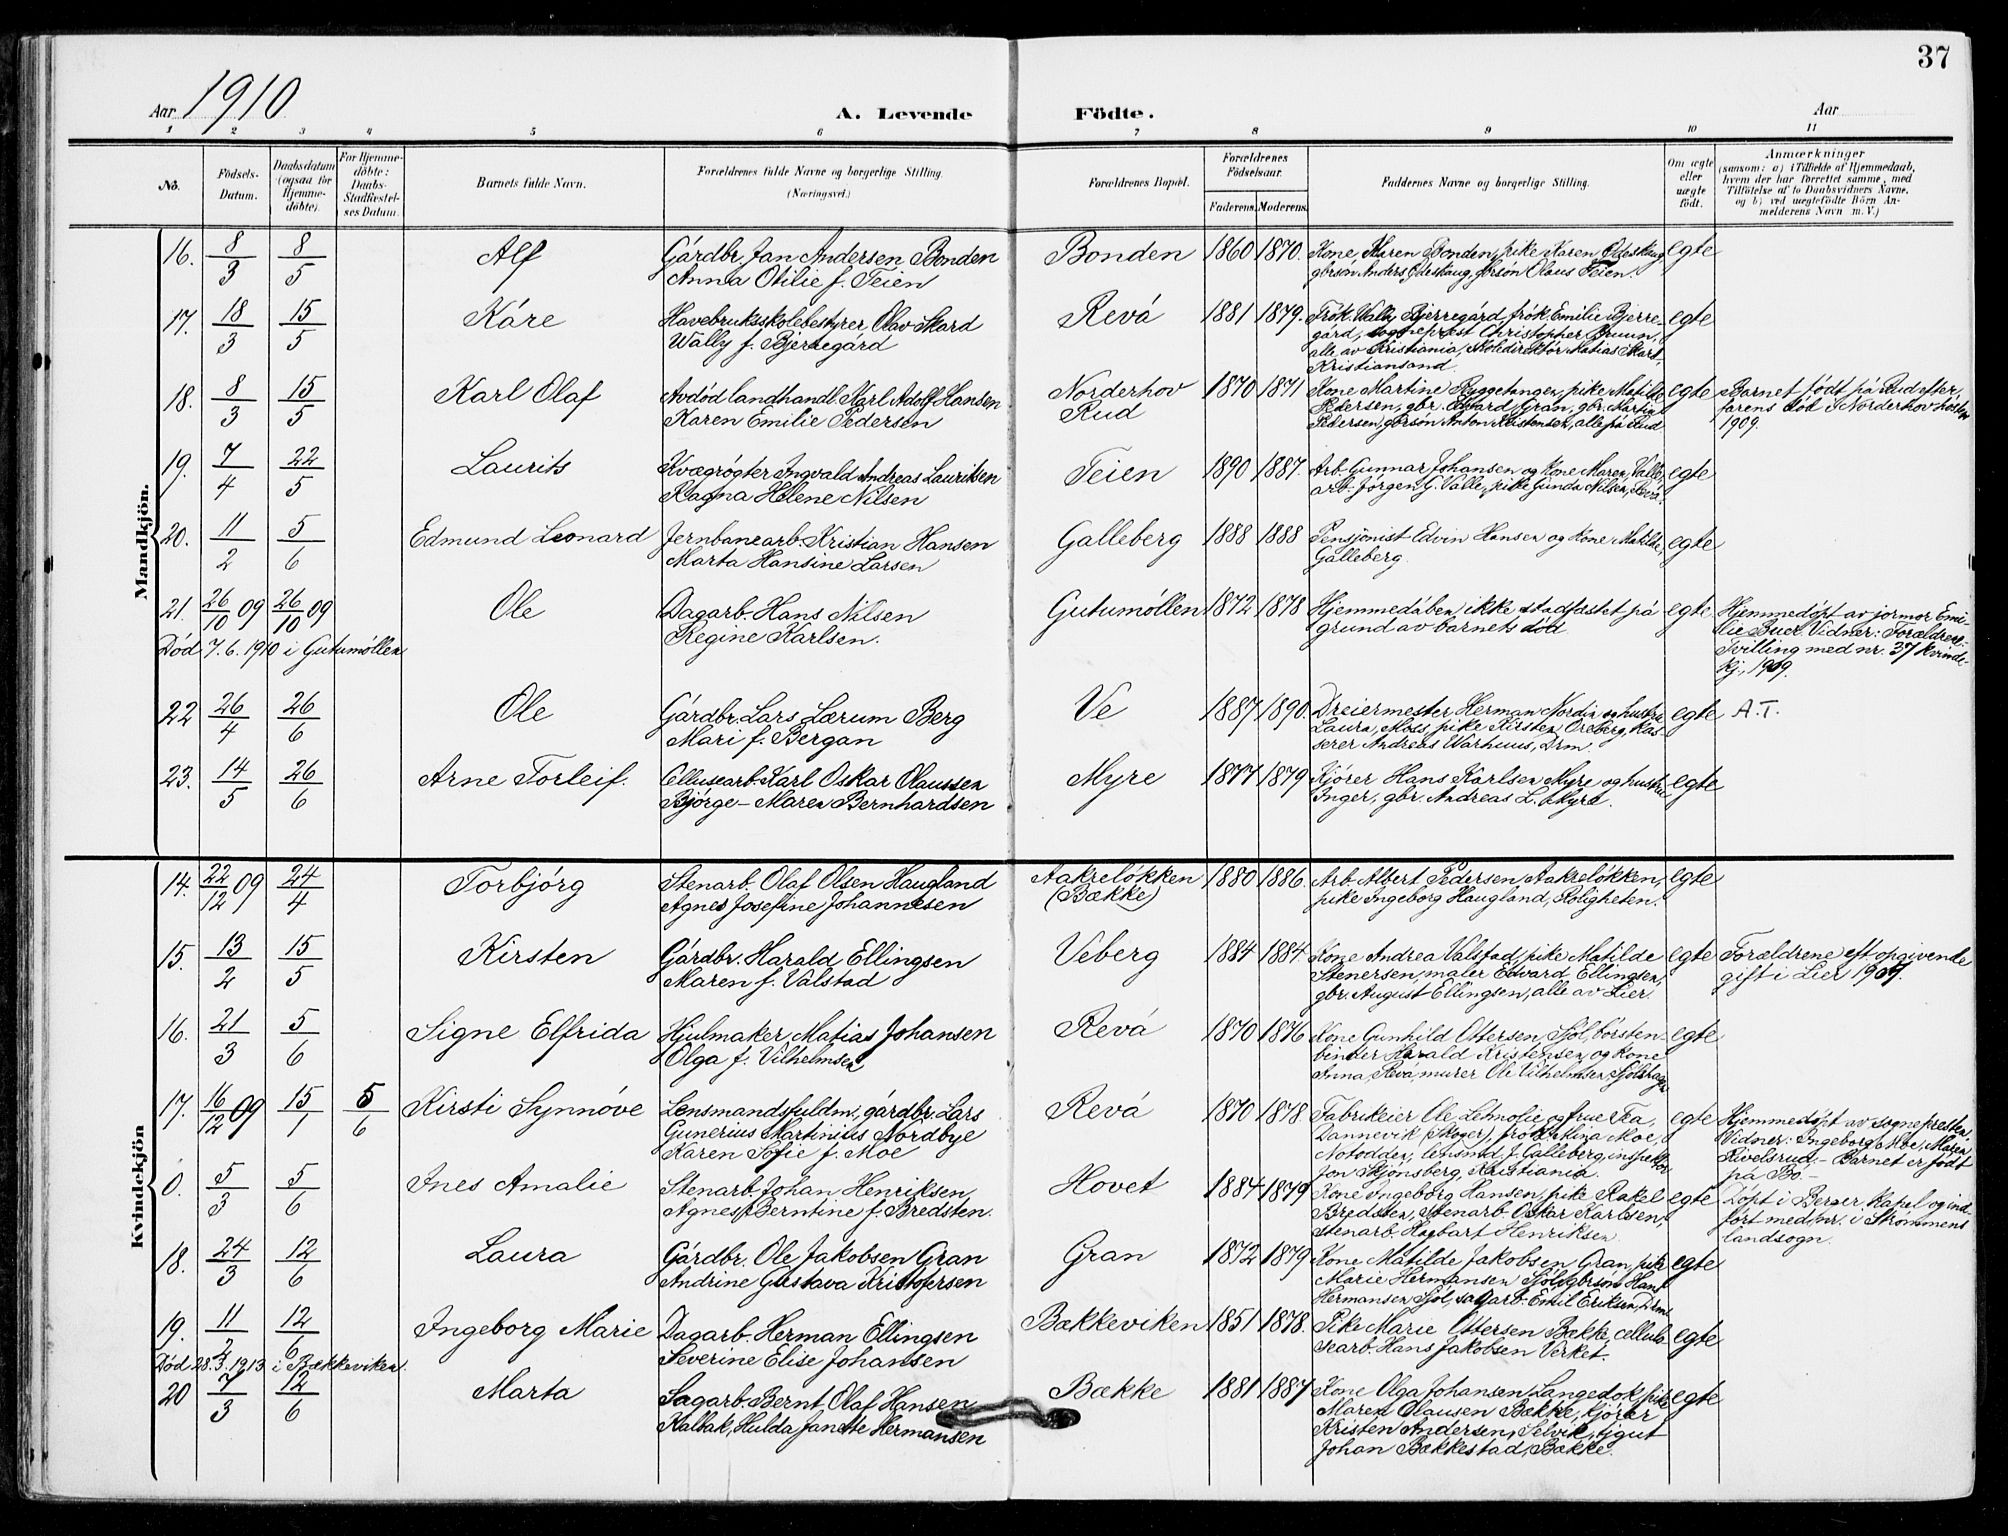 37
Aar 1910
A. Levende Födte.
Aar
1 2 3 4 5 6 7 8 9 10 11
No.
Födsels-Datum.
Daabsdatum (ogsaa for Hjemme-döbte).
For Hjemme-döbte: Daabs-Stadfæstel-ses Datum.
Barnets fulde Navn.
Forældrenes fulde Navne og borgerlige Stilling. (Næringsvei.)
Forældrenes Bopæl.
Forældrenes Födselsaar.
Faderens. Moderens.
Faddernes Navne og borgerlige Stilling.
Om ægte eller uægte födt.
Anmærkninger
(saasom: a) i Tilfælde af Hjemmedaab, hvem der har forrettet samme, med Tilföielse af to Daabsvidners Navne, og b) ved uægtefödte Börn An-melderens Navn m. V.)
Mandkjön.
16. 8/3 8/5 Alf Gårdbr. Jan Andersen Bonden Bonden 1860 1870. Kone Maren Bonden, pike Karen Oteskaug egte
Anna Otilie f. Teien gbrsøn Anders Oteskaug, gbrsøn Olaus Teien.
17. 18/3 15/5 Kåre Havebruksskolebestyrer Olav Skard Revå 1881 1879. Frøk. Wally Bjerregård, frøk. Emilie Bjerre- egte
Wally f. Bjerregård gård, sogneprest Christopher Bruun,
alle av Kristiania, Skoledirektør Matias Skard,
Kristiansand.
18. 8/3 15/5 Karl Olaf Avdød landhandl. Karl Adolf Hansen Norderhov 1870 1871 Kone Martine Ryggetangen, pike Matilde egte Barnet født på Rud efter
Karen Emilie Pedersen Rud Pedersen, gbr. Edvard Gran, gbr. Martin farens død i Norderhov høsten
Pedersen, gbrsøn Anton Kristensen, alle på Rud 1909.
19. 7/4 22/5 Laurits Kvægrøgter Ingvald Andreas Lauritsen Teien 1890 1887. Arb. Gunnar Johansen og kone Maren, Valle, egte
Ragna Helene Nilsen arb. Jørgen G. Valle, pike Gunda Nilsen, Revå.
20. 11/2 5/6 Edmund Leonard Jernbanearb. Kristian Hansen Galleberg 1888 1888 Pensjonist Edvin Hansen og kone Matilde, egte
Marta Hansine Larsen Galleberg.
21. 26/10 09 26/10 09 Ole Dagarb. Hans Nilsen Gutumøllen 1872 1878 Hjemmedåben ikke stadfæstet på egte Hjemmedøpt av jormor Emi-
Regine Karlsen. grund av barnets død. lie Buer. Vidner: Forældrene.
Død 7.6.1910 i Gutumøllen Tvilling med nr. 37 kvinde-
kj., 1909.
22 26/4 26/6 Ole Gårdbr. Lars Lærum Berg Ve 1887 1890. Dreiermester Herman Nordin og hustru egte A.T.
Mari f. Bergan Laura, Moss, pike Kirsten Oreberg, kas-
serer Andreas Warhuus, Drm.
23. 14/5 26/6 Arne Torleif. Cellusearb. Karl Oskar Olaussen Myre 1877 1879 Kjører Hans Karlsen Myre og hustru egte
Bjørge - Maren Bernhardsen Inger, gbr. Andreas L. Myre.
Kvindekjön
14. 22/12 09 24/4 Torbjørg Stenarb. Olaf Olsen Haugland Aakreløkken 1880 1886. Arb. Albert Pedersen Aakreløkken, egte
Agnes Josefine Johannesen (Bække) pike Ingeborg Haugland, Roligheten.
15. 13/2 15/5 Kirsten Gårdbr. Harald Ellingsen Veberg 1884 1884. Kone Andrea Valstad, pike Matilde egte Forældrene eft. opgivende
Maren f. Valstad Stenersen, maler Edvard Ellingsen, gift i Lier 1907.
gbr. August Ellingsen, alle av Lier.
16. 21/3 5/6 Signe Elfrida Hjulmaker Matias Johansen Revå 1870 1876 Kone Gunhild Ottersen, Sjøl, børsten- egte
Olga f. Vilhelmsen binder Harald Kristensen og kone
Anna, Revå, murer Ole Vilhelmsen, Sjølshagn
17. 16/12 09 15/1 5/6 Kirsti Synnøve Lensmandsfuldm., gårdbr. Lars Revå 1870 1878. Fabrikeier Ole Letmolie og frue Tea, egte Hjemmedøpt av sognepresten,
Gunerius Martinius Nordbye Dannevik (Skoger), frøk. Alina Moe, Vidner: Ingeborg Moe, Maren
Karen Sofie f. Moe Notodden, lensmd. J. Galleberg, inspektør Rivelsrud. - Barnet er født
Jon Skjønsberg, Kristiania. på Bo. -
0. 5/3 5/6 Ines Amalie Stenarb. Johan Henriksen, Hovet 1884 1879 Kone Ingeborg Hansen, pike Rakel egte Døpt i Berger kapel og ind-
Agnes Berntine f. Bredsten. Bredsten, stenarb. Oskar Karlsen, ført med nr. i Strømmens
stenarb. Hagbart Henriksen. landsogn.
18. 24/3 12/6 Laura Gårdbr. Ole Jakobsen Gran Gran 1872 1879 Kone Matilde Jakobsen Gran, pike egte
Andrine Gustava Kristofersen Marie Hermansen Sjøl, gbrsøn Hans
Hermansen Sjøl, sagarb. Emil Eriksen, Drm.
19. 11/2 12/6 Ingeborg Marie Dagarb. Herman Ellingsen Bækkeviken 1851 1878. Pike Marie Ottersen Bække, cellulo- egte
Severine Elise Johansen searb. Hans Jakobsen Verket.
Død 28.3.1913 i Bækkeviken.
20 7/3 12/6 Marta Sagarb. Bernt Olaf Hansen Bække 1881 1887 Kone Olga Johansen, Langedok, pike egte
Kalbak, Hulda Janette Hermansen Maren Olausen Bække, kjører
Kristen Andersen, Selvik, tjgut
Johan Bækkestad, Bække.